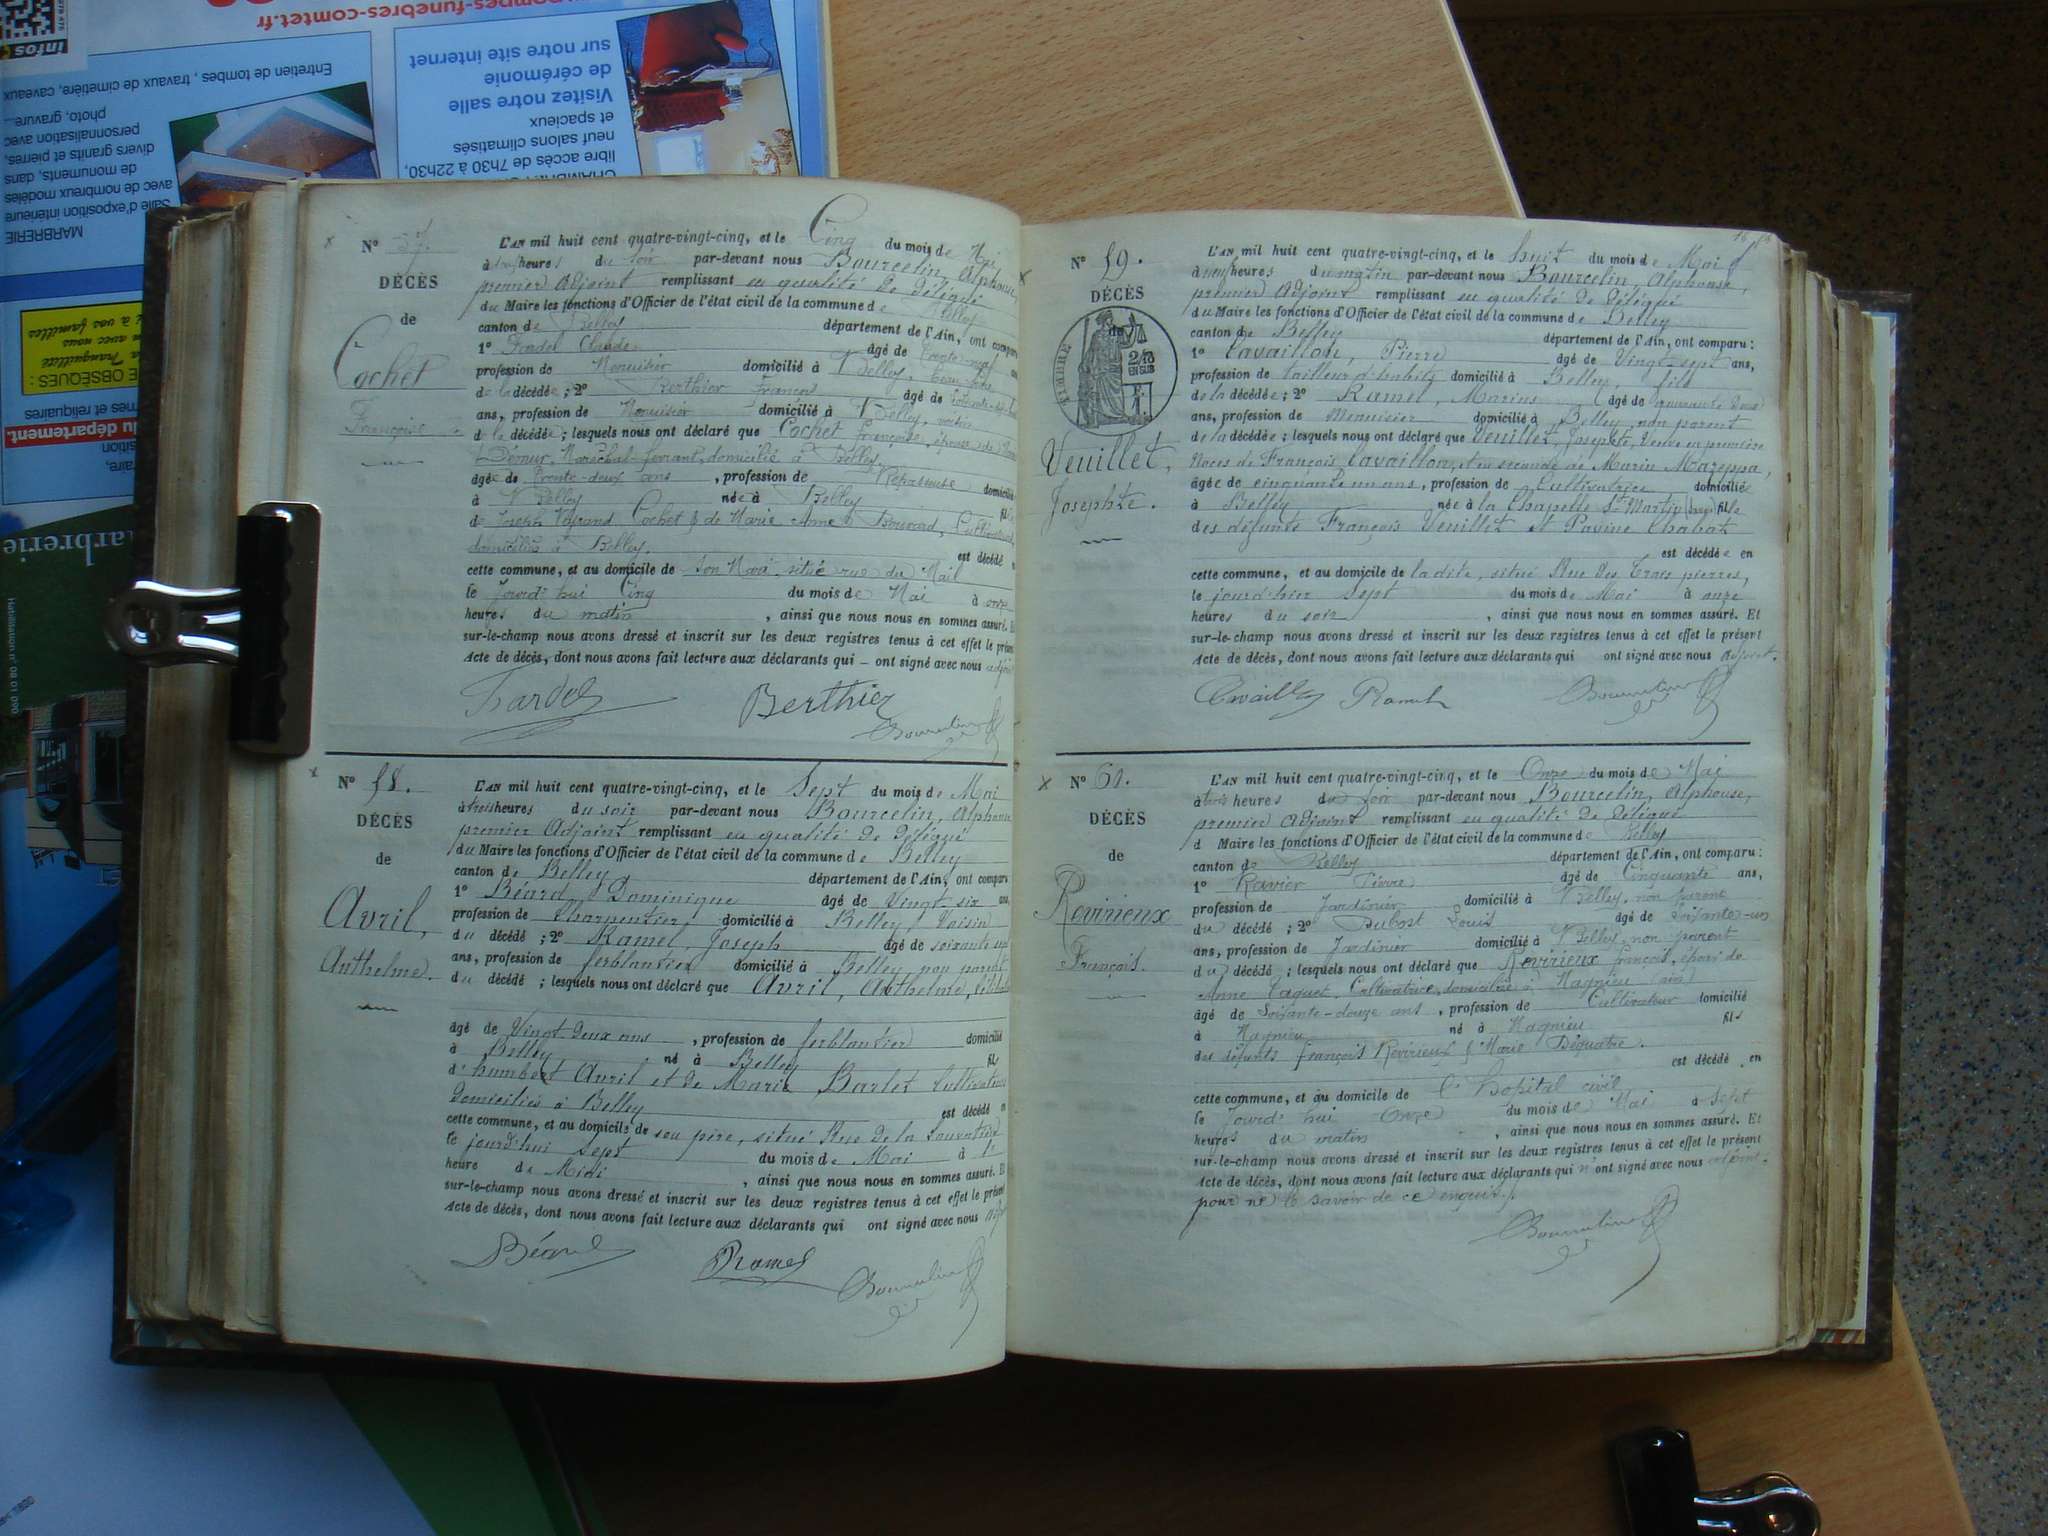 pompes-funebres-comtet.fr
infos
Entretien de tombes, travaux de cimetière, caveaux
photo, gravure...
personnalisation avec
divers granits et pierres,
de monuments, dans
avec de nombreux modèles
Salle d'exposition intérieure
MARBRERIE
sur notre site internet
de cérémonie
Visitez notre salle
et spacieux
neuf salons climatisés
libre accès de 7h30 à 22h30,
OBSÈQUES :
et reliquaires
du département.
Habilitation n° 08 01 090
N° 57.
DÉCÈS
de
Cochet
Françoise
L'AN mil huit cent quatre-vingt-cinq, et le Cinq du mois de Mai
à heures du soir par-devant nous Bourcelin, Alphonse,
premier Adjoint remplissant en qualité de délégué
du Maire les fonctions d'Officier de l'état civil de la commune de Belley
canton de Belley département de l'Ain, ont comparu
1° Claude âgé de trente-neuf
profession de Menuisier domicilié à Belley,
de la décédée ; 2° Berthier François âgé de
ans, profession de Menuisier domicilié à Belley, voisin
de la décédée ; lesquels nous ont déclaré que Cochet Françoise, épouse de
Maréchal-ferrant, domicilié à Belley
âgée de trente-deux ans , profession de Repasseuse domiciliée
à Belley née à Belley fille
de Joseph Cochet & de Marie Anne
domiciliés à Belley. est décédée
cette commune, et au domicile de son Mari situé rue du Mail
le jourd'hui Cinq du mois de Mai à onze
heures du matin , ainsi que nous nous en sommes assuré. Et
sur-le-champ nous avons dressé et inscrit sur les deux registres tenus à cet effet le présent
Acte de décès, dont nous avons fait lecture aux déclarants qui ont signé avec nous adjoint
Berthier
N° 58.
DÉCÈS
de
Avril,
Anthelme.
L'AN mil huit cent quatre-vingt-cinq, et le Sept du mois de Mai
à trois heures du soir par-devant nous Bourcelin, Alphonse
premier Adjoint remplissant en qualité de délégué
du Maire les fonctions d'Officier de l'état civil de la commune de Belley
canton de Belley département de l'Ain, ont comparu
1° Béard Dominique âgé de Vingt six ans
profession de Charpentier domicilié à Belley, Voisin
du décédé ; 2° Ramel, Joseph âgé de soixante sept
ans, profession de ferblantier domicilié à Belley, non parent
du décédé ; lesquels nous ont déclaré que Avril, Anthelme, Célibataire
âgé de Vingt deux ans , profession de ferblantier domicilié
à Belley né à Belley fils
d'humbert Avril et de Marie Barlet Cultivateurs
domiciliés à Belley est décédé en
cette commune, et au domicile de son père, situé Rue de la
le jourd'hui sept du mois de Mai à 1
heure de Midi , ainsi que nous nous en sommes assuré. Et
sur-le-champ nous avons dressé et inscrit sur les deux registres tenus à cet effet le présent
Acte de décès, dont nous avons fait lecture aux déclarants qui ont signé avec nous
Béard Ramel
N° 59.
DÉCÈS
de
TIMBRE
Veuillet,
Josephte.
L'AN mil huit cent quatre-vingt-cinq, et le huit du mois de Mai
à neuf heures du matin par-devant nous Bourcelin, Alphonse,
premier Adjoint remplissant en qualité de délégué
du Maire les fonctions d'Officier de l'état civil de la commune de Belley
canton de Belley département de l'Ain, ont comparu :
1° Cavaillon, Pierre âgé de Vingt-sept ans,
profession de tailleur d'habits domicilié à Belley, fils
de la décédée ; 2° Ramel, Marius âgé de
ans, profession de Menuisier domicilié à Belley, non parent
de la décédée ; lesquels nous ont déclaré que Veuillet, Josephte, Veuve en première
Noces de François Cavaillon, et en seconde de Marin Mazeppa,
âgée de cinquante un ans, profession de Cultivatrice domiciliée
à Belley née à la Chapelle St Martin fille
des défunts François Veuillet et Pavine Chabot
est décédée en
cette commune, et au domicile de la dite, situé Rue des Trois pierres,
le jourd'hier sept du mois de Mai à onze
heures du soir , ainsi que nous nous en sommes assuré. Et
sur-le-champ nous avons dressé et inscrit sur les deux registres tenus à cet effet le présent
Acte de décès, dont nous avons fait lecture aux déclarants qui ont signé avec nous adjoint.
Ramel
N° 60.
DÉCÈS
de
Revirieux
François.
L'AN mil huit cent quatre-vingt-cinq, et le Onze du mois de Mai
à trois heures du soir par-devant nous Bourcelin, Alphonse,
premier Adjoint remplissant en qualité de délégué
d Maire les fonctions d'Officier de l'état civil de la commune de Belley
canton de Belley département de l'Ain, ont comparu :
1° Ravier Pierre âgé de Cinquante ans,
profession de Jardinier domicilié à Belley, non parent
du décédé ; 2° Dubost Louis âgé de Soixante-un
ans, profession de Jardinier domicilié à Belley, non parent
du décédé ; lesquels nous ont déclaré que Revirieux françois, époux de
Anne Taquet, Cultivatrice, domiciliée à Magnieu (ain)
âgé de Soixante-douze ans , profession de Cultivateur domicilié
à Magnieu né à Magnieu fils
des défunts françois Revirieux & Marie
est décédé en
cette commune, et au domicile de l'hopital civil
le jourd'hui Onze du mois de Mai à Sept
heures du matin , ainsi que nous nous en sommes assuré. Et
sur-le-champ nous avons dressé et inscrit sur les deux registres tenus à cet effet le présent
Acte de décès, dont nous avons fait lecture aux déclarants qui n'ont signé avec nous adjoint.
pour ne le savoir de ce enquis.